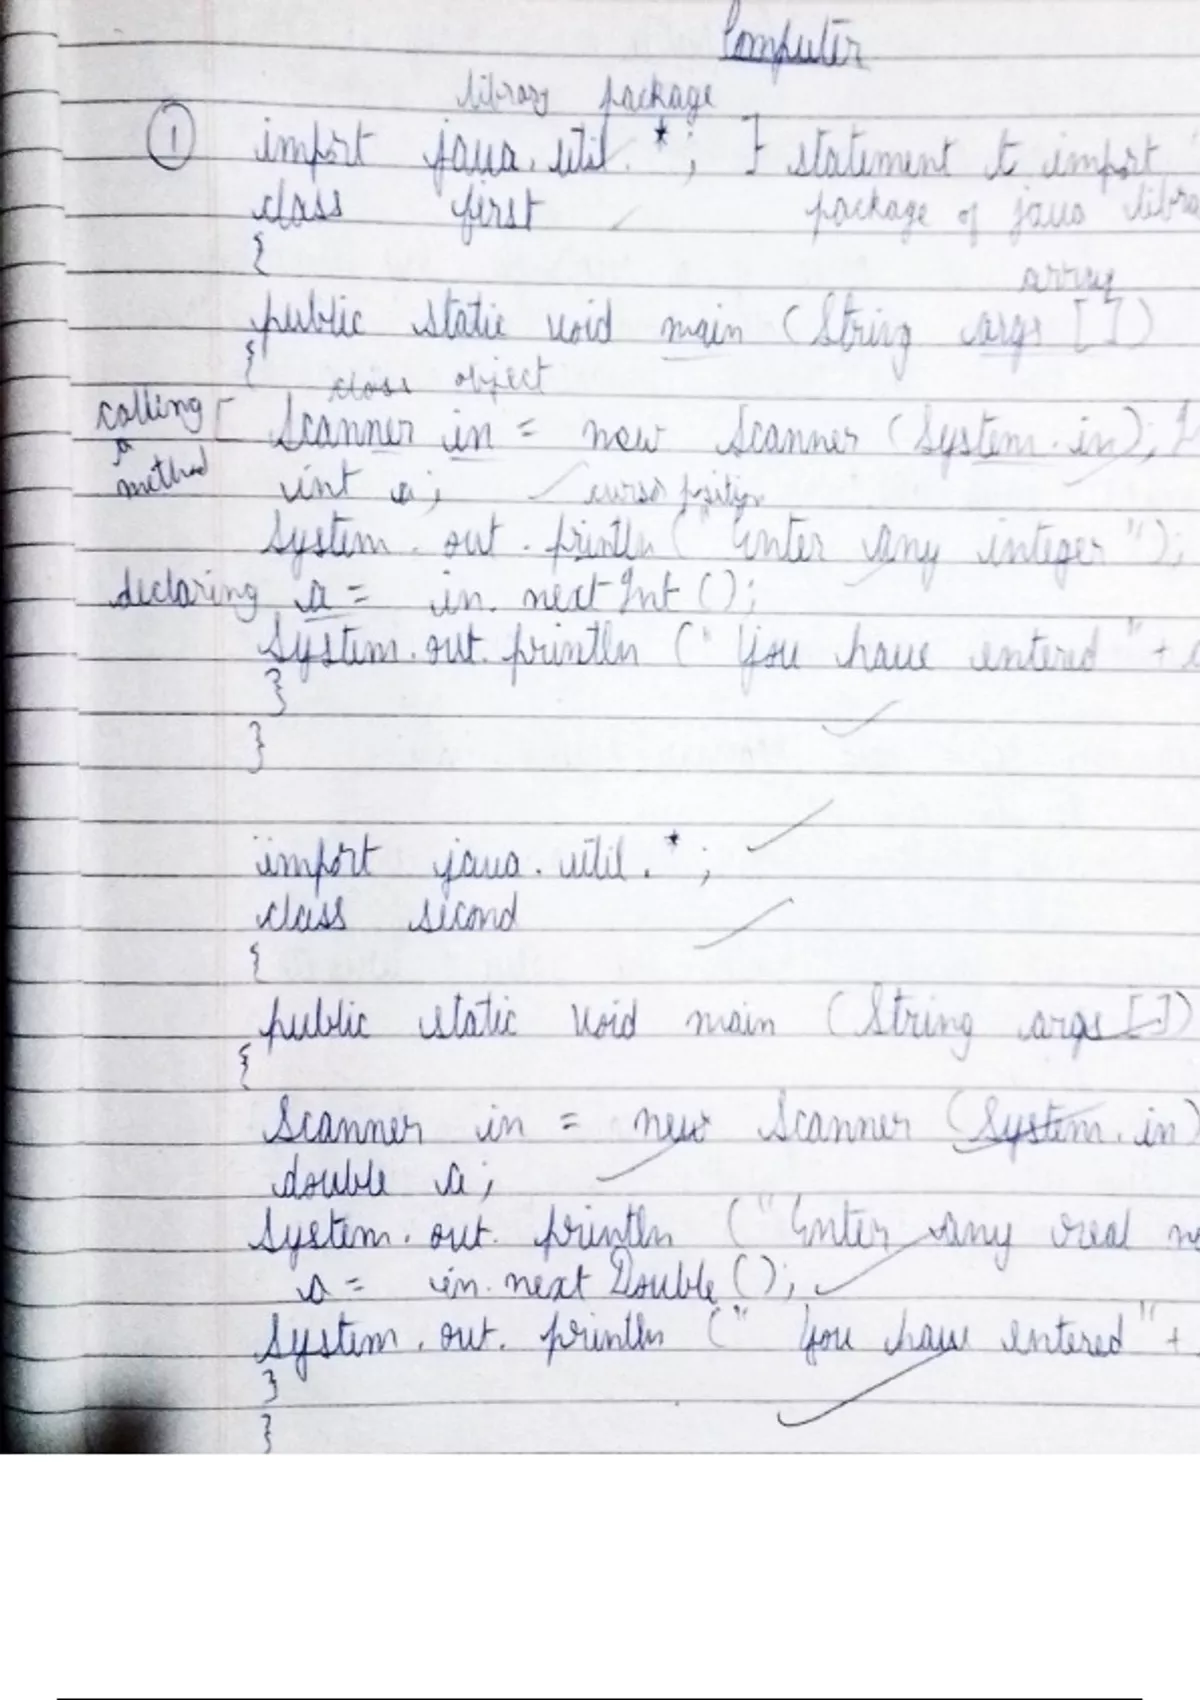 Computer
library package
① import java.util.*; } statement to import
class first package of java libra
{
array
public static void main (String args [])
{
class object
calling a method
Scanner in = new Scanner (System.in);
int a; cursor position
System.out.println ("Enter any integer");
declaring a = in.nextInt ();
System.out.println (" You have entered " +
}
}
import java.util.*;
class second
{
public static void main (String args [])
{
Scanner in = new Scanner (System.in)
double a;
System.out.println ("Enter any real
a = in.nextDouble ();
System.out.println (" You have entered " +
}
}